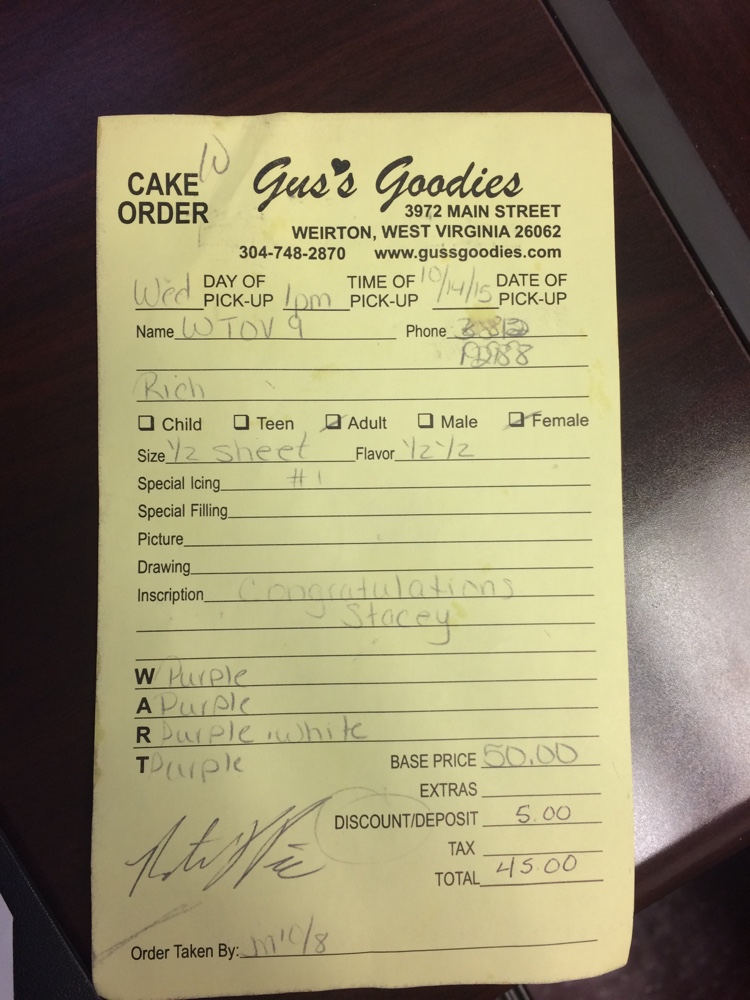 CAKE ORDER
10
Gus's Goodies
3972 MAIN STREET
WEIRTON, WEST VIRGINIA 26062
304-748-2870 www.gussgoodies.com
Wed DAY OF PICK-UP 1pm TIME OF PICK-UP 10/14/15 DATE OF PICK-UP
Name WTOV 9 Phone
Rich
Child Teen Adult Male Female
Size 1/2 sheet Flavor 1/2 1/2
Special Icing #1
Special Filling
Picture
Drawing
Inscription Congratulations
Stacey
W Purple
A Purple
R Purple white
T Purple
BASE PRICE 50.00
EXTRAS
DISCOUNT/DEPOSIT 5.00
TAX
TOTAL 45.00
Order Taken By: 10/8